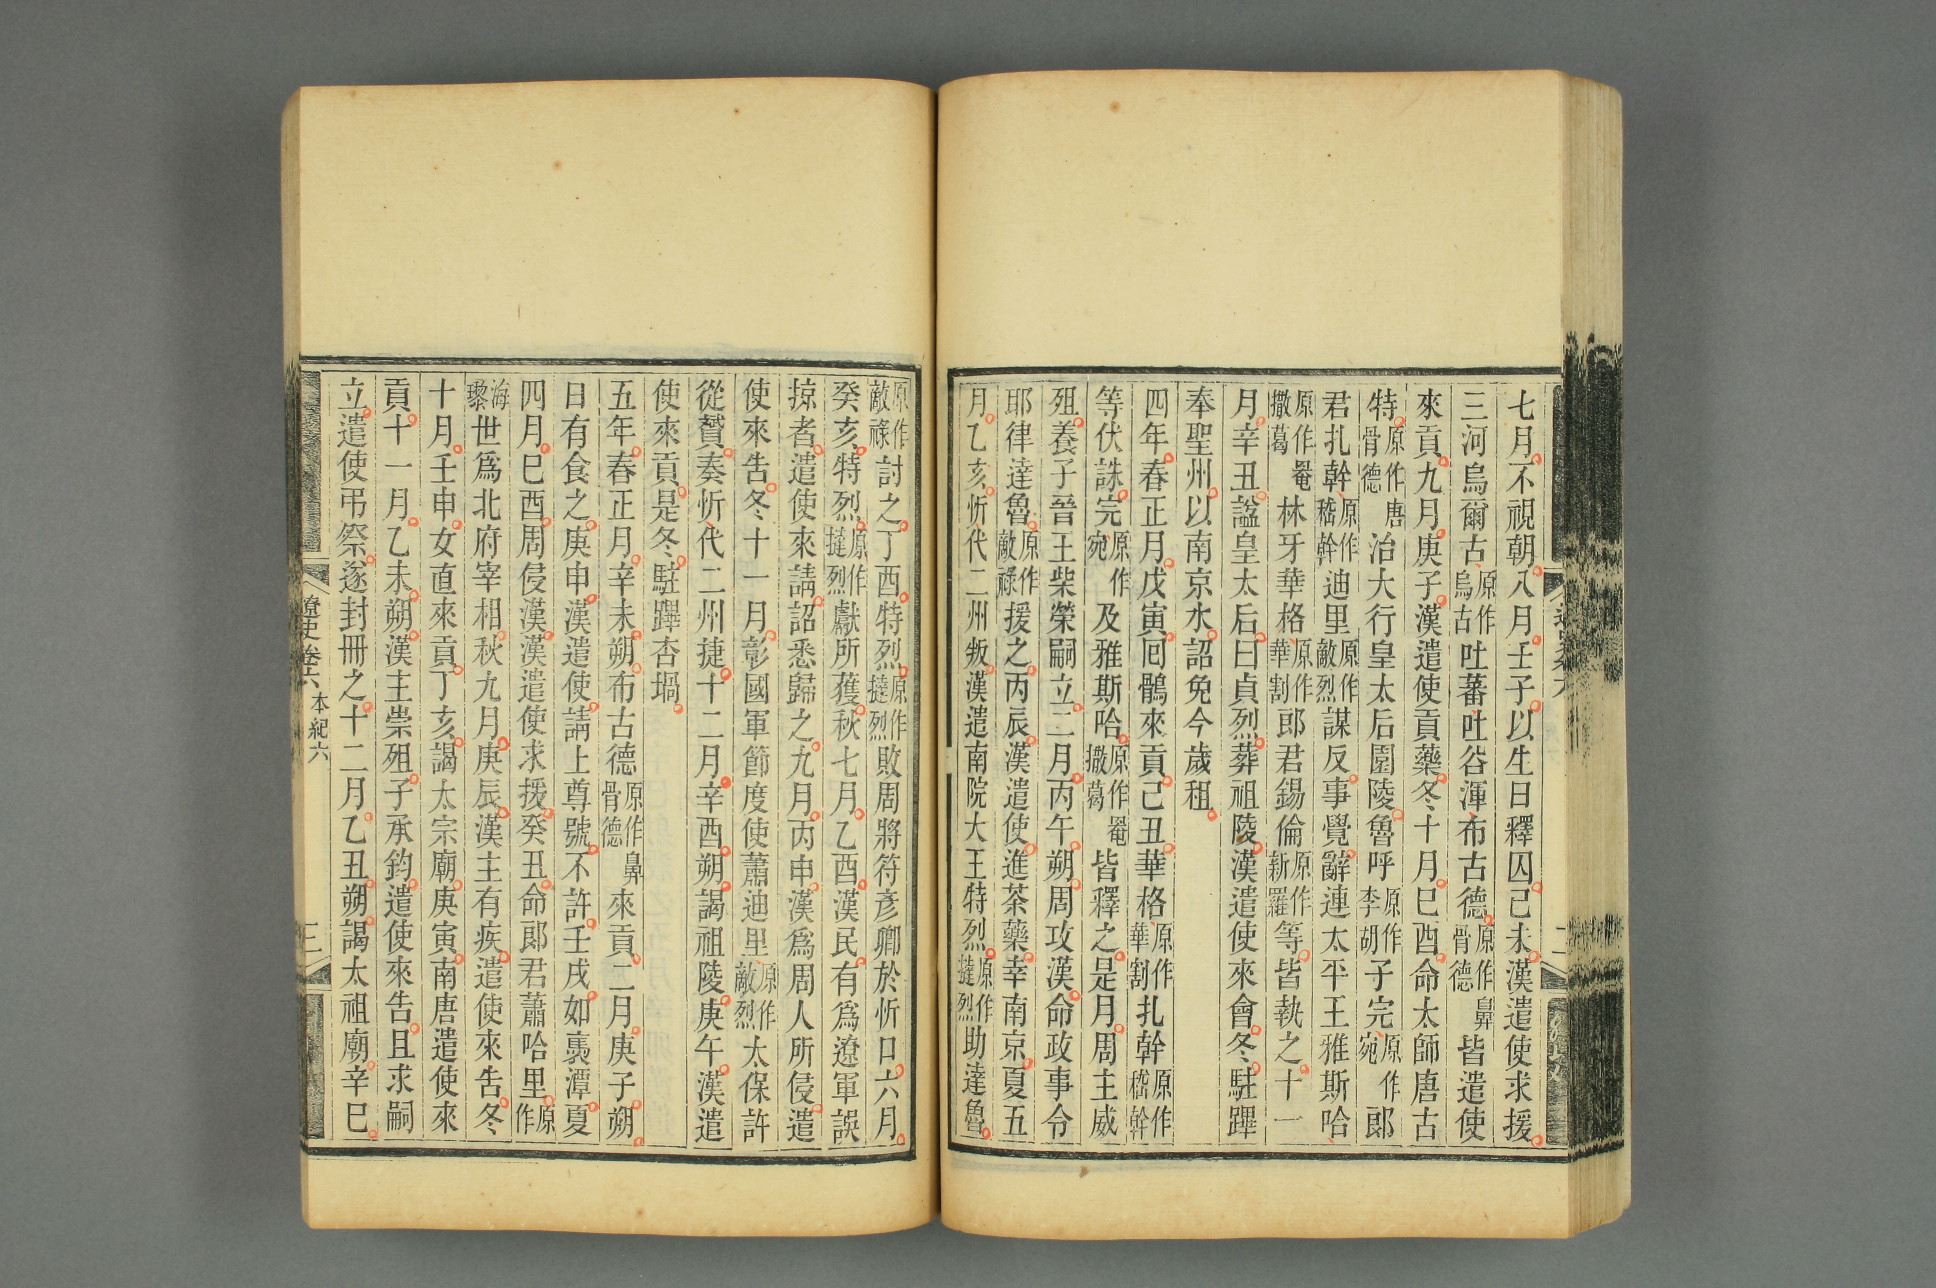 七月不視朝八月壬子以生日釋囚己未漢遣使求援
三河烏爾古原作烏古吐蕃吐谷渾布古德原作鼻骨德皆遣使
來貢九月庚子漢遣使貢藥冬十月己酉命太師唐古
特原作唐骨德治大行皇太后園陵魯呼原作李胡子完原作宛郞
君扎幹原作嵇幹迪里原作敵烈謀反事覺辭連太平王雅斯哈
原作罨撒葛林牙華格原作華割郎君錫倫原作新羅等皆執之十一
月辛丑諡皇太后曰貞烈葬祖陵漢遣使來會冬駐蹕
奉聖州以南京水詔免今歲租
四年春正月戊寅回鶻來貢己丑華格原作華割扎幹原作嵇幹
等伏誅完原作宛及雅斯哈原作罨撒葛皆釋之是月周主威
殂養子晉王柴榮嗣立二月丙午朔周攻漢命政事令
耶律達魯原作敵祿援之丙辰漢遣使進茶藥幸南京夏五
月乙亥忻代二州叛漢遣南院大王特烈原作撻烈助達魯
原作敵祿討之丁酉特烈原作撻烈敗周將符彥卿於忻口六月
癸亥特烈原作撻烈獻所獲秋七月乙酉漢民有爲遼軍誤
掠者遣使來請詔悉歸之九月丙申漢爲周人所侵遣
使來告冬十一月彰國軍節度使蕭迪里原作敵烈太保許
從贇奏忻代二州捷十二月辛酉朔謁祖陵庚午漢遣
使來貢是冬駐蹕杏堝
五年春正月辛未朔布古德原作鼻骨德來貢二月庚子朔
日有食之庚申漢遣使請上尊號不許壬戌如褭潭夏
四月己酉周侵漢漢遣使求援癸丑命郎君蕭哈里原作
海瓈世爲北府宰相秋九月庚辰漢主有疾遣使來告冬
十月壬申女直來貢丁亥謁太宗廟庚寅南唐遣使來
貢十一月乙未朔漢主崇殂子承鈞遣使來告且求嗣
立遣使弔祭遂封冊之十二月乙丑朔謁太祖廟辛巳
遼史卷六 本紀六 三